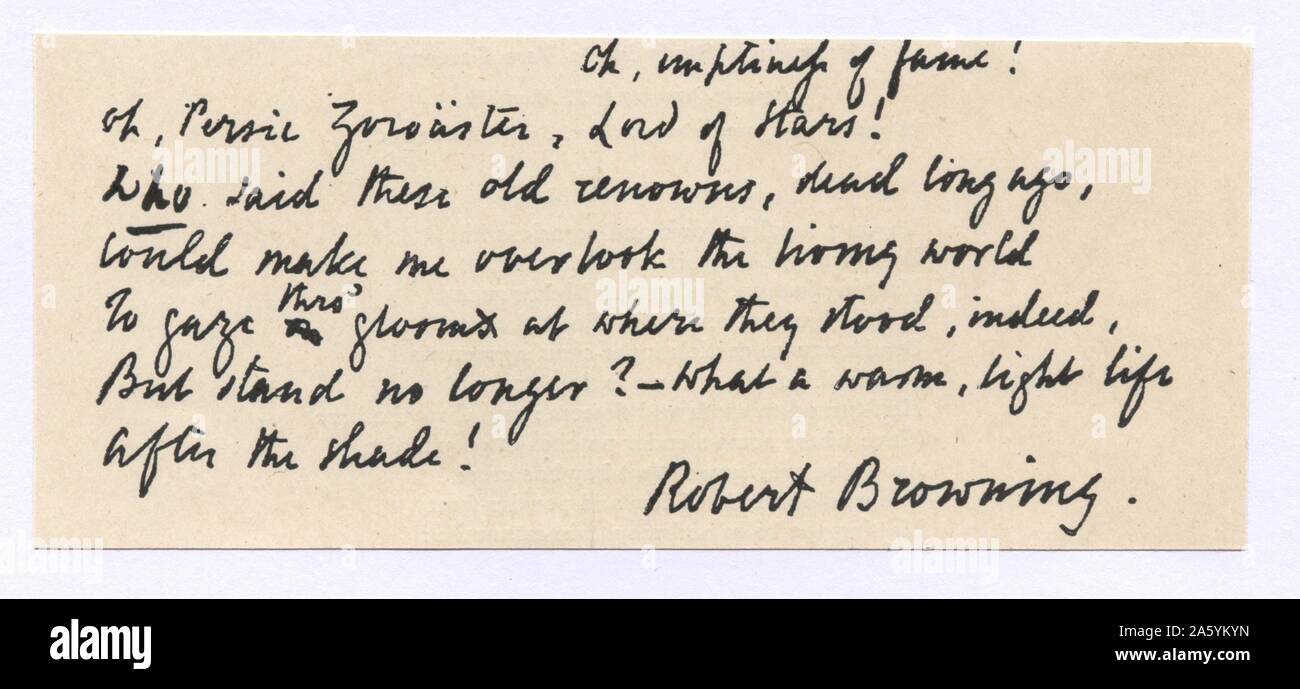 Oh, emptiness of fame!
Oh, Persic Zoroäster, Lord of Stars!
Who said these old renowns, dead long ago,
Could make me overlook the living world
To gaze thro' gloom at where they stood, indeed,
But stand no longer?—What a warm, light life
After the shade!
Robert Browning.
alamy
alamy
Image ID: 2A5YKYN
www.alamy.com